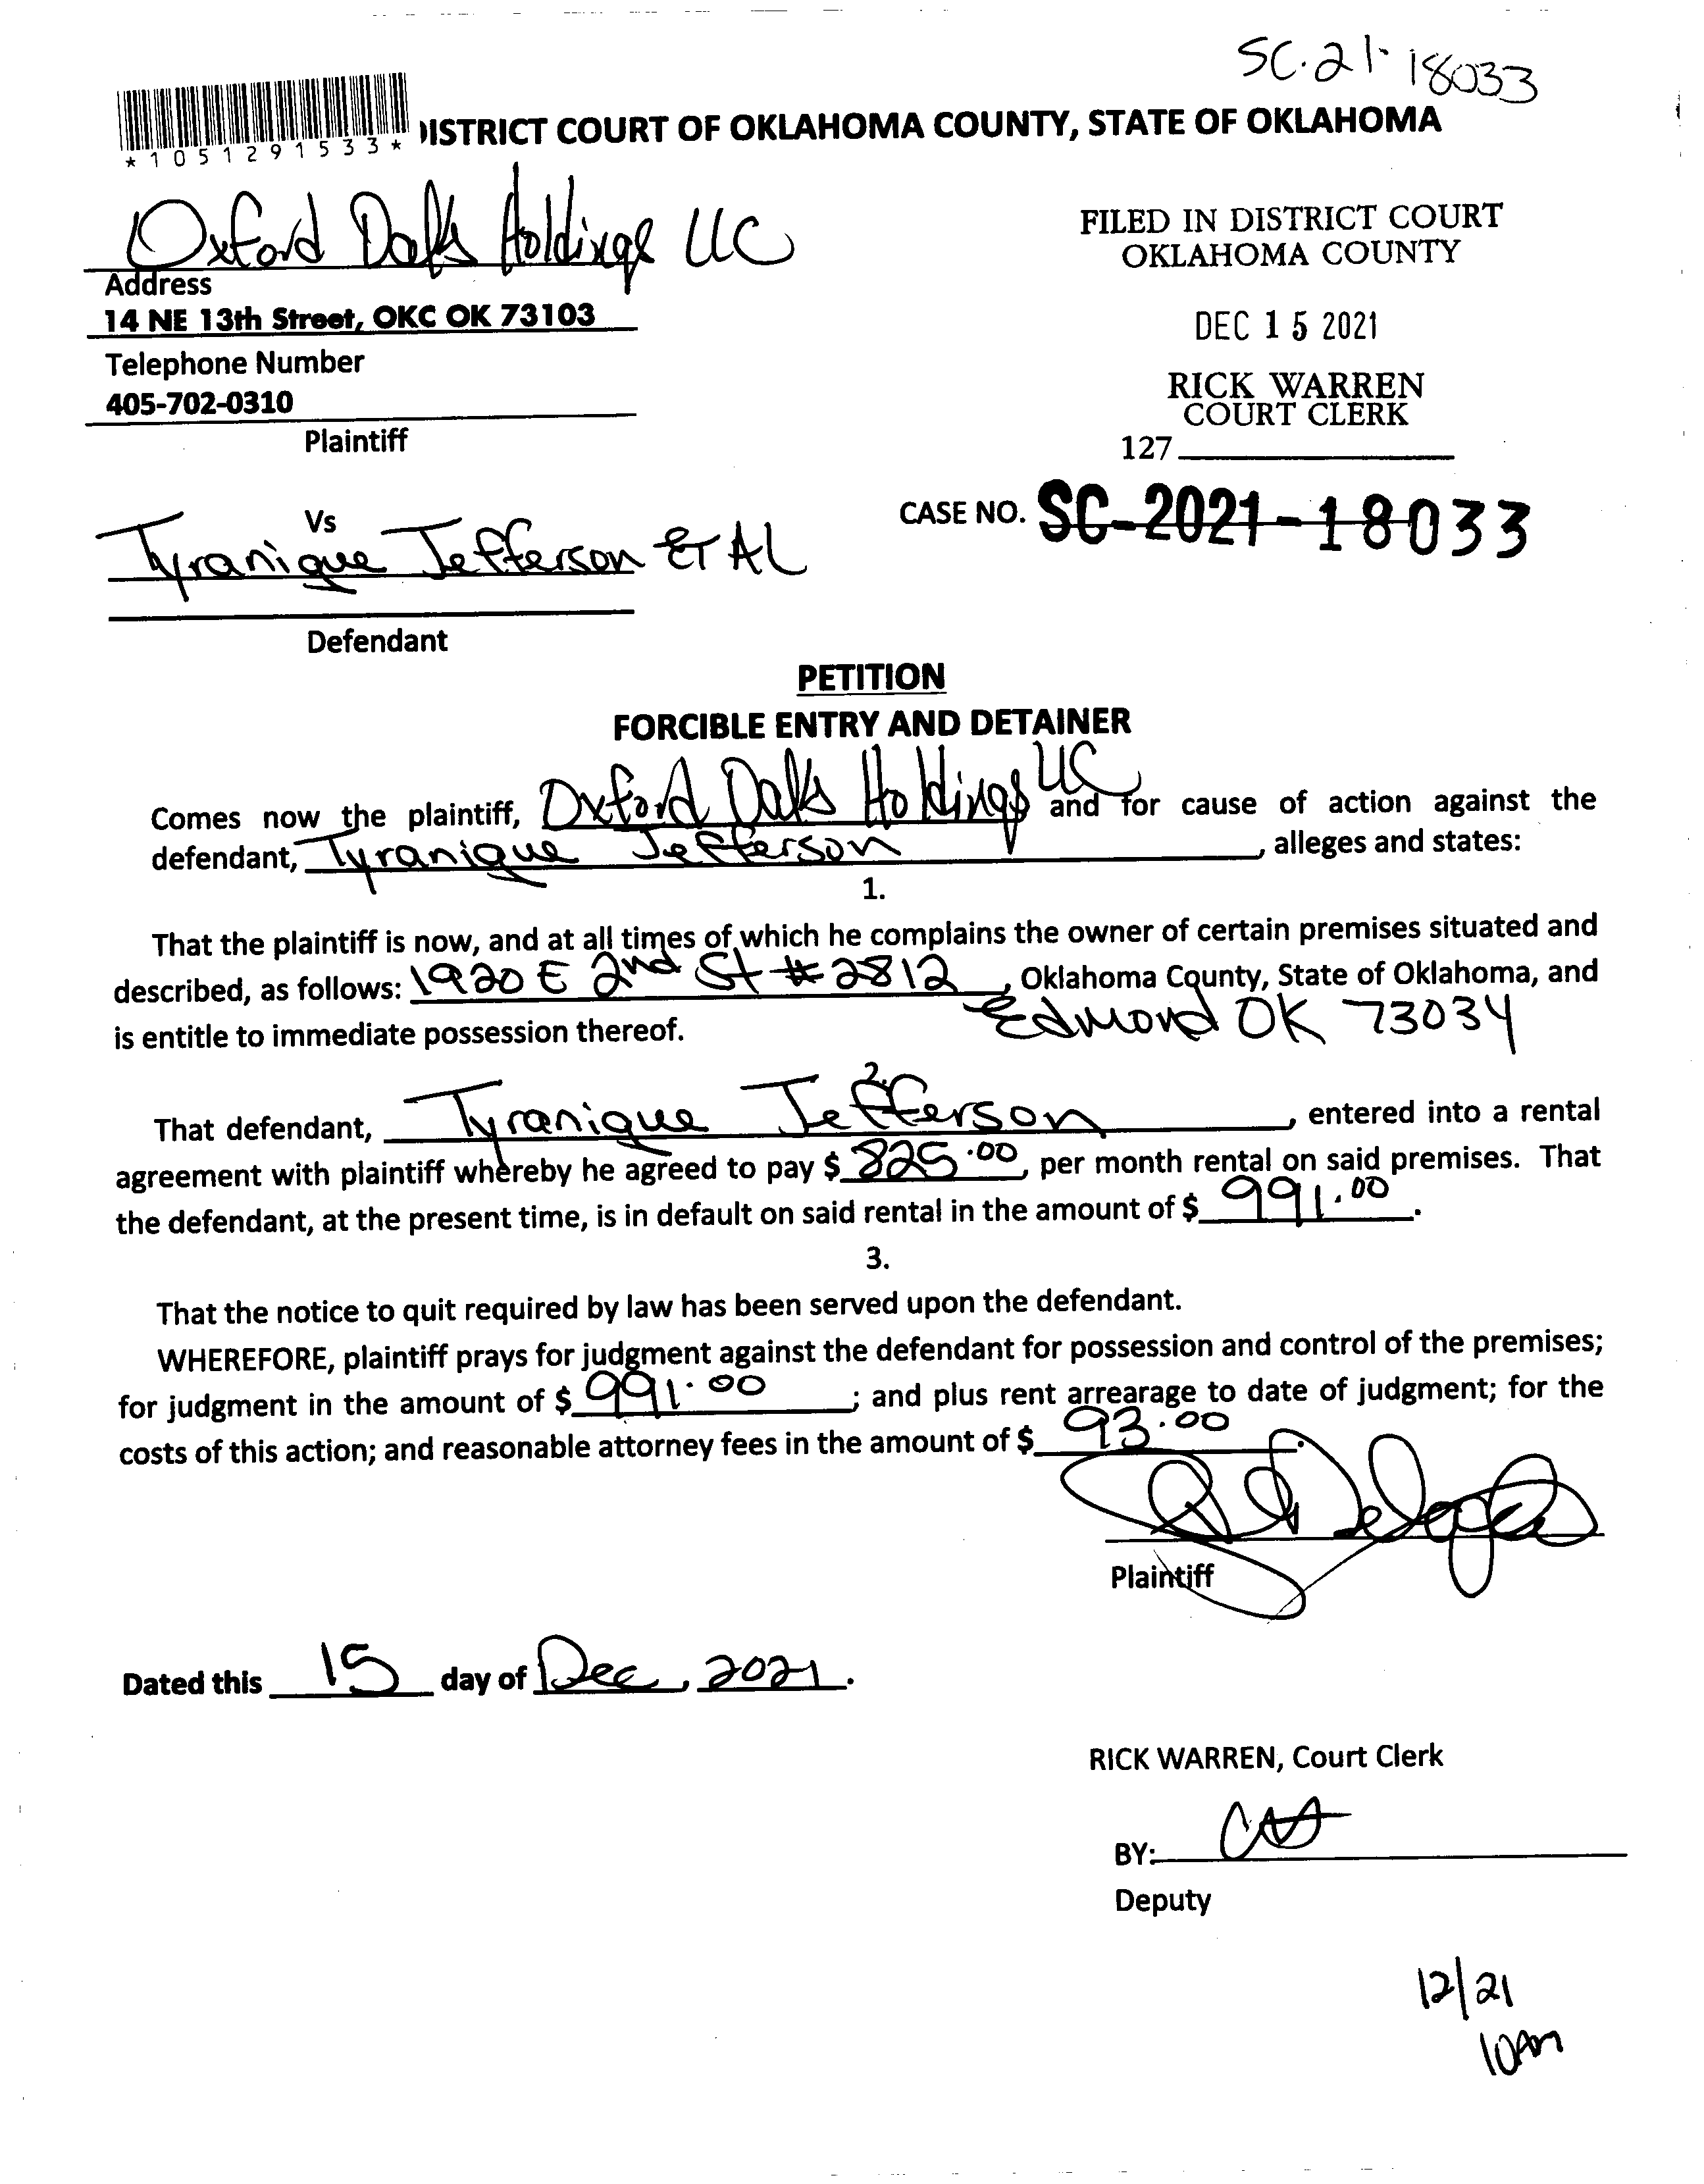 SC.21-18033
*1051291533*
DISTRICT COURT OF OKLAHOMA COUNTY, STATE OF OKLAHOMA
Oxford Oaks Holdings LLC
Address
14 NE 13th Street, OKC OK 73103
Telephone Number
405-702-0310
Plaintiff
FILED IN DISTRICT COURT
OKLAHOMA COUNTY
DEC 15 2021
RICK WARREN
COURT CLERK
127
Vs
Tyranique Jefferson ET AL
Defendant
CASE NO. SC-2021-18033
PETITION
FORCIBLE ENTRY AND DETAINER
Comes now the plaintiff, Oxford Oaks Holdings LLC and for cause of action against the
defendant, Tyranique Jefferson, alleges and states:
1.
That the plaintiff is now, and at all times of which he complains the owner of certain premises situated and
described, as follows: 1920 E 2nd St #2812, Oklahoma County, State of Oklahoma, and
Edmond OK 73034
is entitle to immediate possession thereof.
2.
That defendant, Tyranique Jefferson, entered into a rental
agreement with plaintiff whereby he agreed to pay $ 825.00, per month rental on said premises. That
the defendant, at the present time, is in default on said rental in the amount of $ 991.00.
3.
That the notice to quit required by law has been served upon the defendant.
WHEREFORE, plaintiff prays for judgment against the defendant for possession and control of the premises;
for judgment in the amount of $ 991.00; and plus rent arrearage to date of judgment; for the
costs of this action; and reasonable attorney fees in the amount of $ 93.00.
Plaintiff
Dated this 15 day of Dec, 2021.
RICK WARREN, Court Clerk
BY:
Deputy
12/21
10am